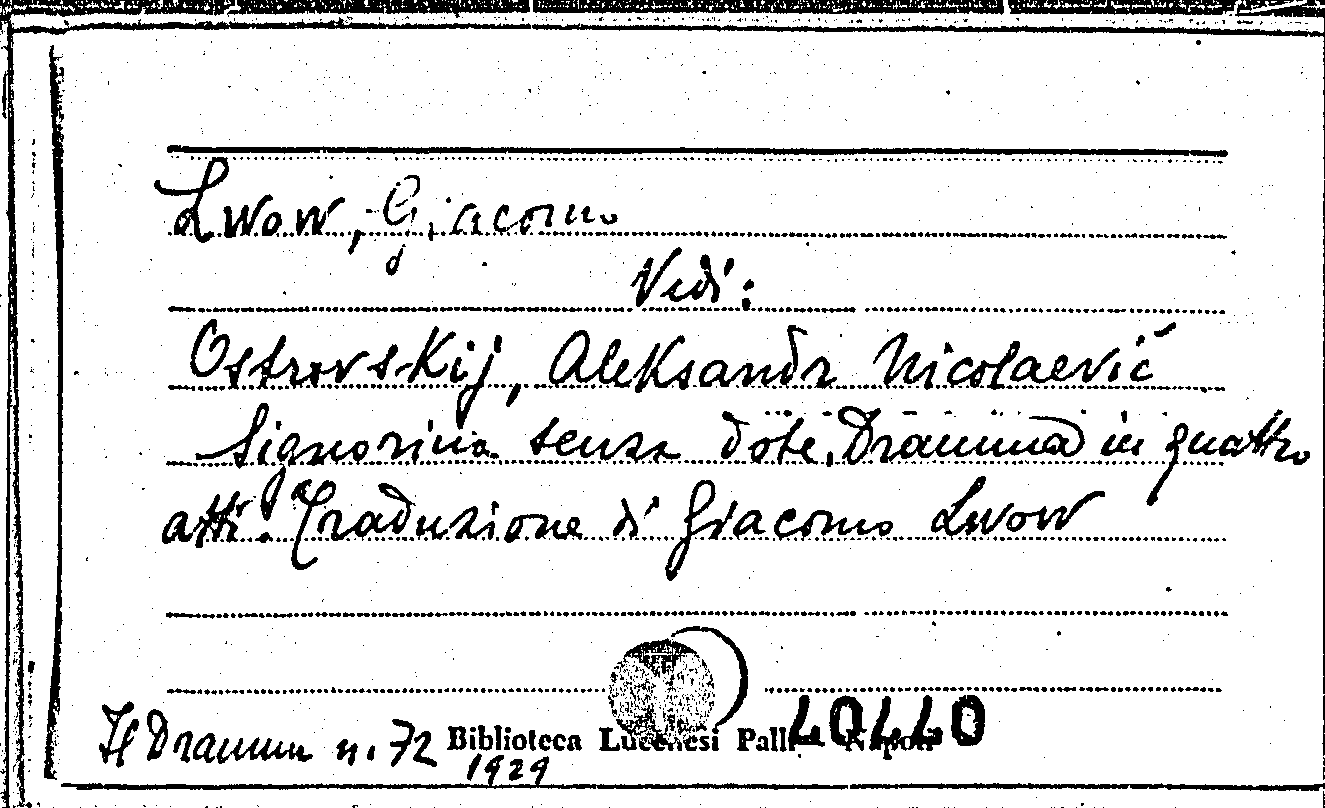 Lwow, Giacomo
Vedi:
Ostrovskij, Aleksandr Nicolaevič
Signorina senza dote. Dramma in quattro
atti. Traduzione di Giacomo Lwow
Il Dramma n. 72 Biblioteca Lucchesi Palli - Napoli
1929